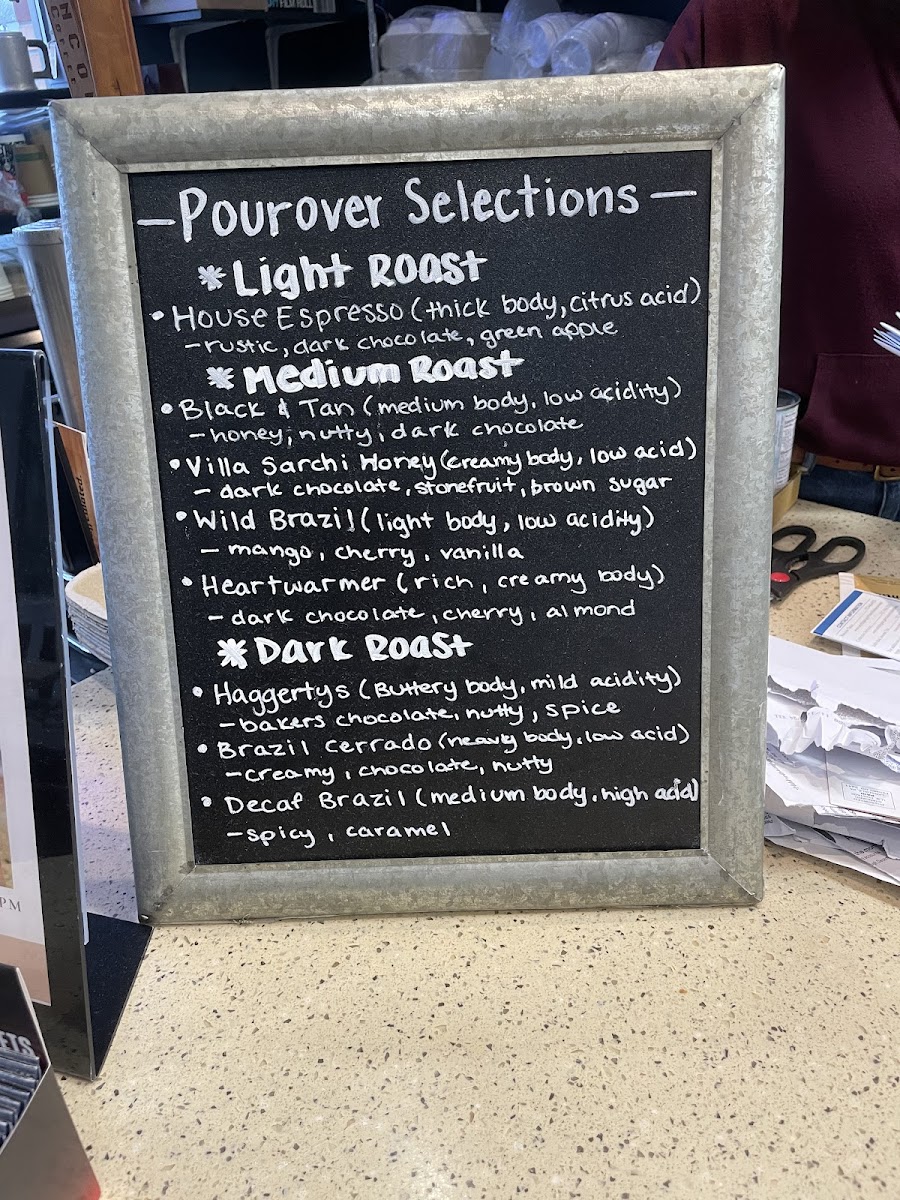 —Pourover Selections—
* Light Roast
• House Espresso (thick body, citrus acid)
– rustic, dark chocolate, green apple
* Medium Roast
• Black & Tan (medium body, low acidity)
– honey, nutty, dark chocolate
• Villa Sarchi Honey (creamy body, low acid)
– dark chocolate, stonefruit, brown sugar
• Wild Brazil (light body, low acidity)
– mango, cherry, vanilla
• Heartwarmer (rich, creamy body)
– dark chocolate, cherry, almond
* Dark Roast
• Haggertys (Buttery body, mild acidity)
– bakers chocolate, nutty, spice
• Brazil Cerrado (heavy body, low acid)
– creamy, chocolate, nutty
• Decaf Brazil (medium body, high acid)
– spicy, caramel
PM